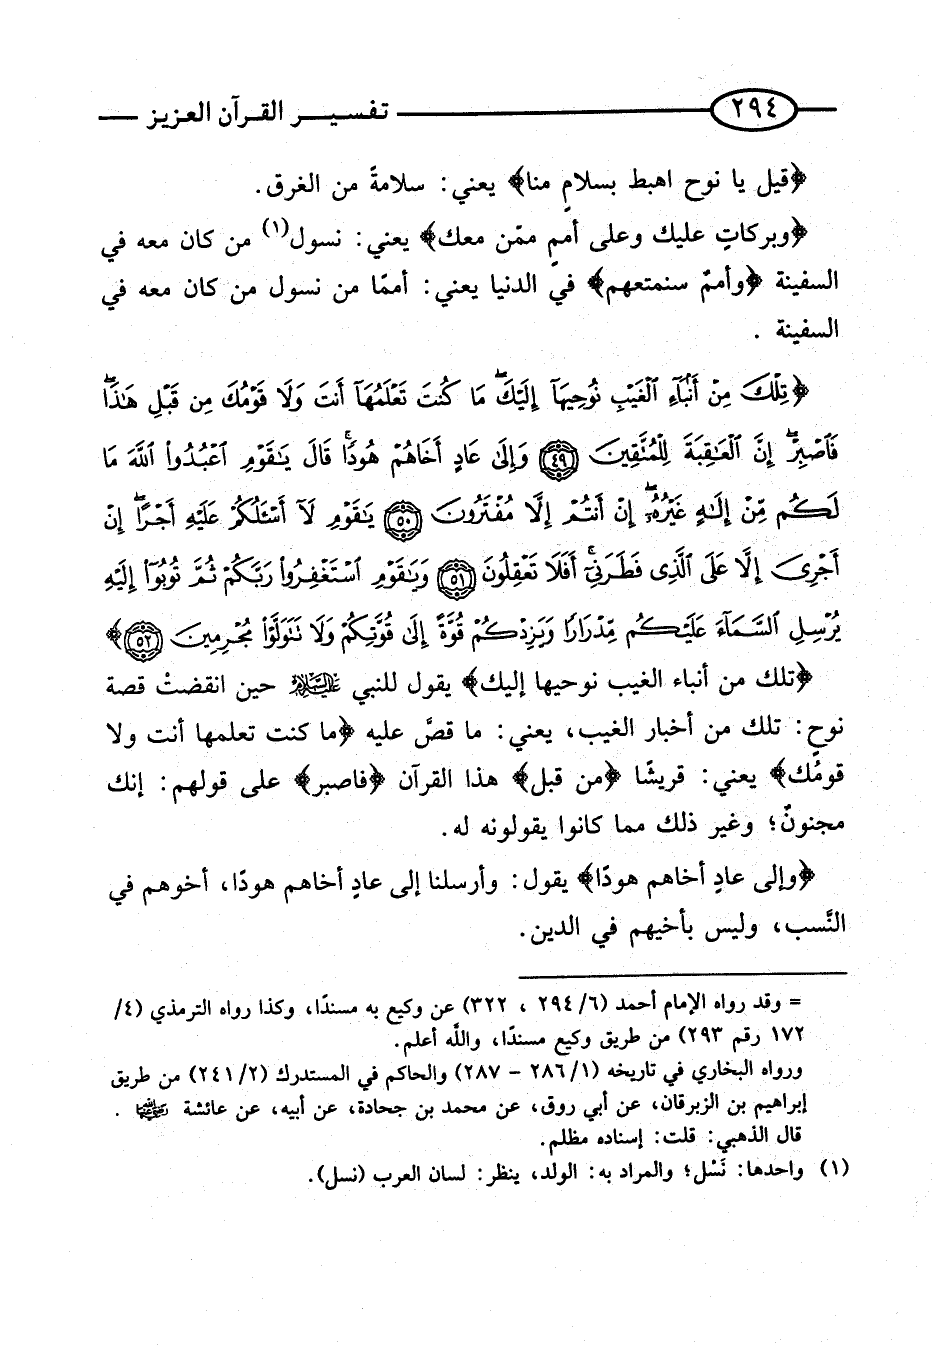 ٢٩٤ تفسير القرآن العزيز
﴿قيل يا نوح اهبط بسلامٍ منا﴾ يعني: سلامةً من الغرق.
﴿وبركاتٍ عليك وعلى أممٍ ممّن معك﴾ يعني: نسول(١) من كان معه في
السفينة ﴿وأممٌ سنمتعهم﴾ في الدنيا يعني: أممًا من نسول من كان معه في
السفينة .
﴿تِلْكَ مِنْ أَنۢبَآءِ ٱلْغَيْبِ نُوحِيهَآ إِلَيْكَ ۖ مَا كُنتَ تَعْلَمُهَآ أَنتَ وَلَا قَوْمُكَ مِن قَبْلِ هَٰذَا ۖ
فَٱصْبِرْ ۖ إِنَّ ٱلْعَٰقِبَةَ لِلْمُتَّقِينَ ٤٩ وَإِلَىٰ عَادٍ أَخَاهُمْ هُودًا ۚ قَالَ يَٰقَوْمِ ٱعْبُدُوا۟ ٱللَّهَ مَا
لَكُم مِّنْ إِلَٰهٍ غَيْرُهُۥٓ ۖ إِنْ أَنتُمْ إِلَّا مُفْتَرُونَ ٥٠ يَٰقَوْمِ لَآ أَسْـَٔلُكُمْ عَلَيْهِ أَجْرًا ۖ إِنْ
أَجْرِىَ إِلَّا عَلَى ٱلَّذِى فَطَرَنِىٓ ۚ أَفَلَا تَعْقِلُونَ ٥١ وَيَٰقَوْمِ ٱسْتَغْفِرُوا۟ رَبَّكُمْ ثُمَّ تُوبُوٓا۟ إِلَيْهِ
يُرْسِلِ ٱلسَّمَآءَ عَلَيْكُم مِّدْرَارًا وَيَزِدْكُمْ قُوَّةً إِلَىٰ قُوَّتِكُمْ وَلَا تَتَوَلَّوْا۟ مُجْرِمِينَ ٥٢﴾
﴿تلك من أنباء الغيب نوحيها إليك﴾ يقول للنبي عليه السلام حين انقضتْ قصة
نوحٍ: تلك من أخبار الغيب، يعني: ما قصَّ عليه ﴿ما كنت تعلمها أنت ولا
قومُك﴾ يعني: قريشًا ﴿من قبل﴾ هذا القرآن ﴿فاصبر﴾ على قولهم: إنك
مجنونٌ؛ وغير ذلك مما كانوا يقولونه له.
﴿وإلى عادٍ أخاهم هودًا﴾ يقول: وأرسلنا إلى عادٍ أخاهم هودًا، أخوهم في
النَّسب، وليس بأخيهم في الدين.
= وقد رواه الإمام أحمد (٦/ ٢٩٤ ، ٣٢٢) عن وكيع به مسندًا، وكذا رواه الترمذي (٤/
١٧٢ رقم ٢٩٣) من طريق وكيع مسندًا، واللَّه أعلم.
ورواه البخاري في تاريخه (١/ ٢٨٦ - ٢٨٧) والحاكم في المستدرك (٢/ ٢٤١) من طريق
إبراهيم بن الزبرقان، عن أبي روق، عن محمد بن جحادة، عن أبيه، عن عائشة رضي الله عنها .
قال الذهبي: قلت: إسناده مظلم.
(١) واحدها: نَسْل؛ والمراد به: الولد، ينظر: لسان العرب (نسل).